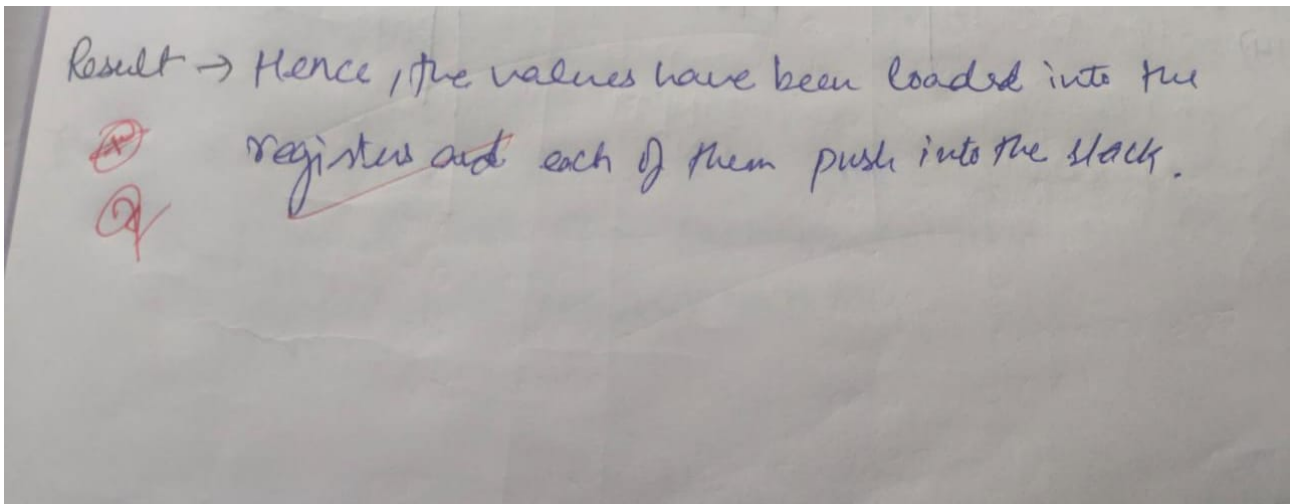 Result → Hence, the values have been loaded into the
registers and each of them push into the stack.